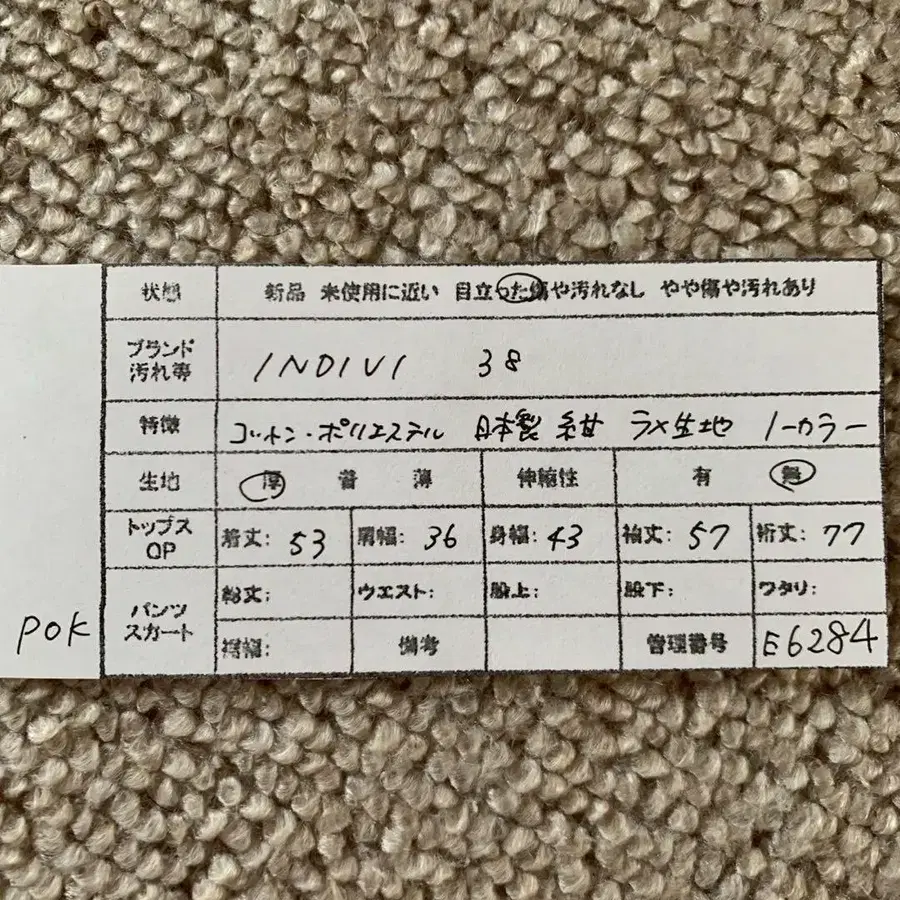 状態 新品 未使用に近い 目立った傷や汚れなし やや傷や汚れあり
ブランド
汚れ等 INDIVI 38
特徴 コットン・ポリエステル 日本製 紺 ラメ生地 ノーカラー
生地 厚 普 薄 伸縮性 有 無
トップス
OP 着丈: 53 肩幅: 36 身幅: 43 袖丈: 57 裄丈: 77
パンツ
スカート 総丈: ウエスト: 股上: 股下: ワタリ:
裾幅: 備考 管理番号 E6284
POK